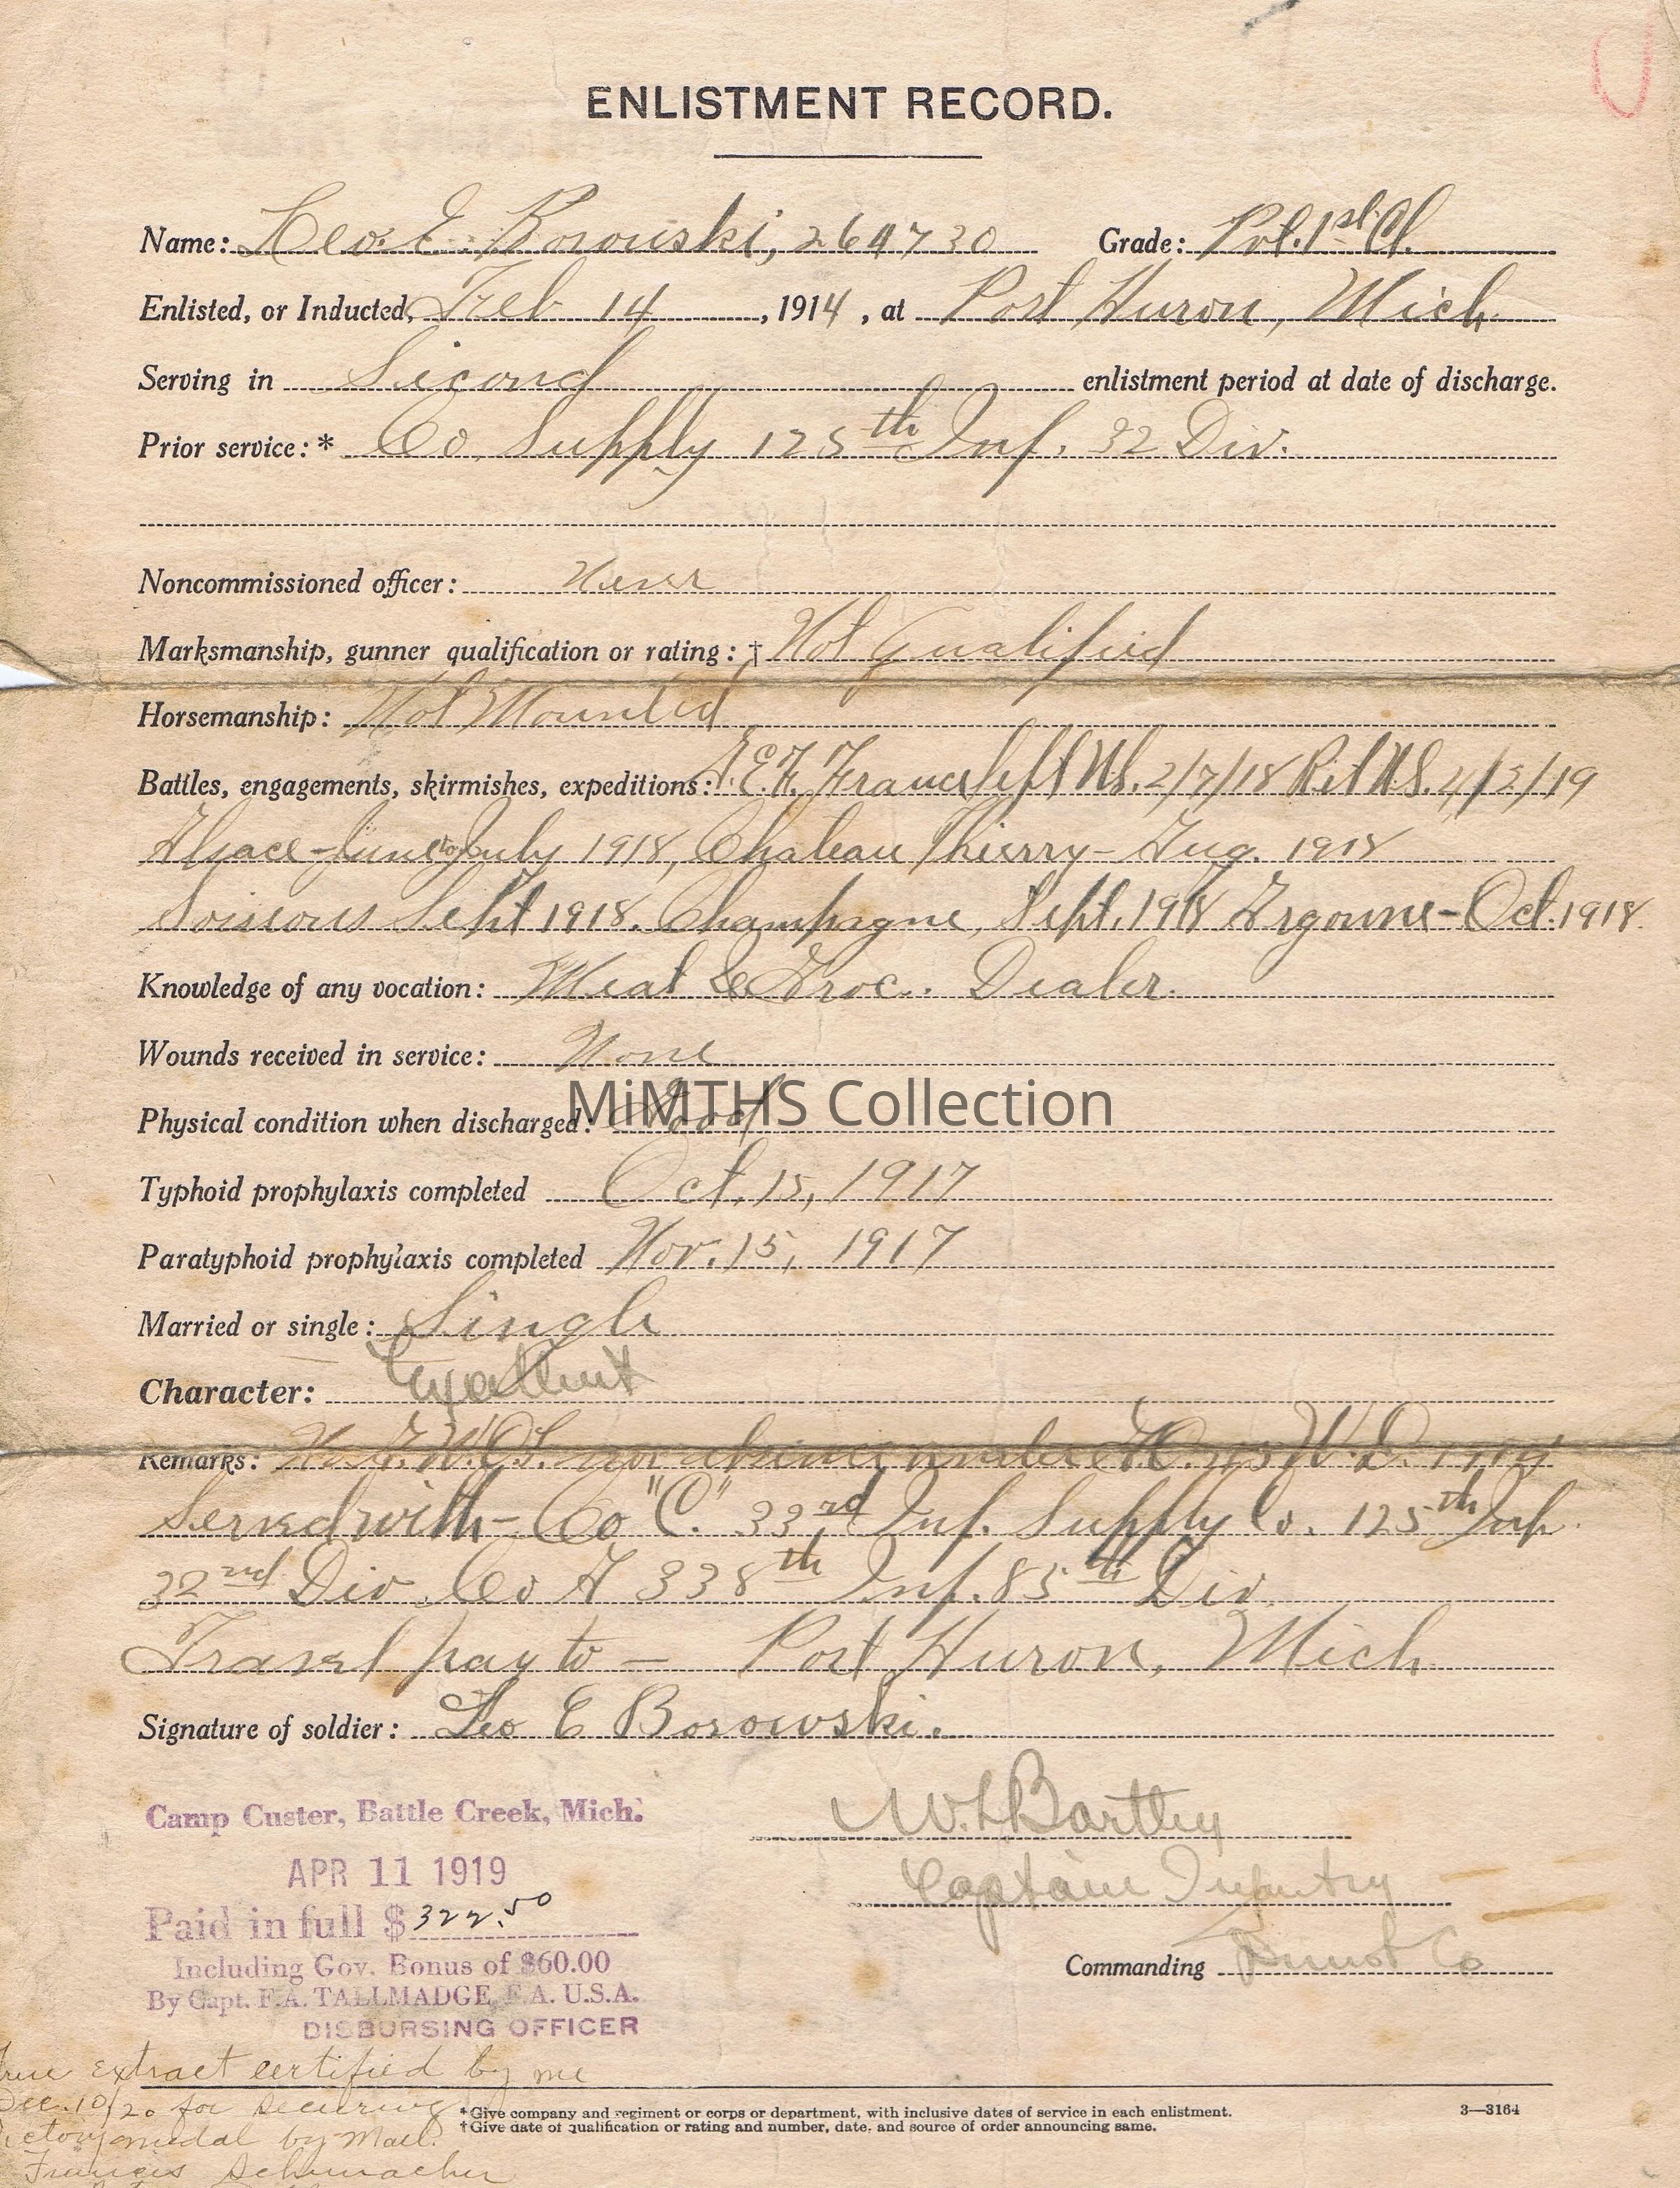 ENLISTMENT RECORD.
Name: Leo. E. Borowski, 264730 Grade: Pvt. 1st Cl.
Enlisted, or Inducted, Feb 14, 1914, at Port Huron, Mich
Serving in Second enlistment period at date of discharge.
Prior service:* Co. Supply 125th Inf. 32 Div.
Noncommissioned officer: Never
Marksmanship, gunner qualification or rating: † Not Qualified
Horsemanship: Not Mounted
Battles, engagements, skirmishes, expeditions: A.E.F. France left U.S. 2/7/18 Ret U.S. 4/3/19
Alsace-June to July 1918, Chateau Thierry-Aug. 1918
Soissons Sept 1918. Champagne, Sept. 1918 Argonne-Oct. 1918.
Knowledge of any vocation: Meat & Groc. Dealer.
Wounds received in service: None
MiMTHS Collection
Physical condition when discharged: Good
Typhoid prophylaxis completed Oct. 15, 1917
Paratyphoid prophylaxis completed Nov. 15, 1917
Married or single: Single
Character: Excellent
Remarks: No A.W.O.L. nor absence under G.O. W.D. 1914
Served with- Co "C". 33rd Inf. Supply Co. 125th Inf.
32nd Div. Co 338th Inf. 85th Div.
Travel pay to — Port Huron, Mich
Signature of soldier: Leo E Borowski.
Camp Custer, Battle Creek, Mich.
W. L Bartley
APR 11 1919
Captain Infantry
Paid in full $322.50
Including Gov. Bonus of $60.00
Commanding Co
By Capt. F.A. TALLMADGE, F.A. U.S.A.
DISBURSING OFFICER
True extract certified by me
Dec. 10/20 for securing
Victory medal by mail.
Francis Schumacher
*Give company and regiment or corps or department, with inclusive dates of service in each enlistment.
3—3164
†Give date of qualification or rating and number, date, and source of order announcing same.